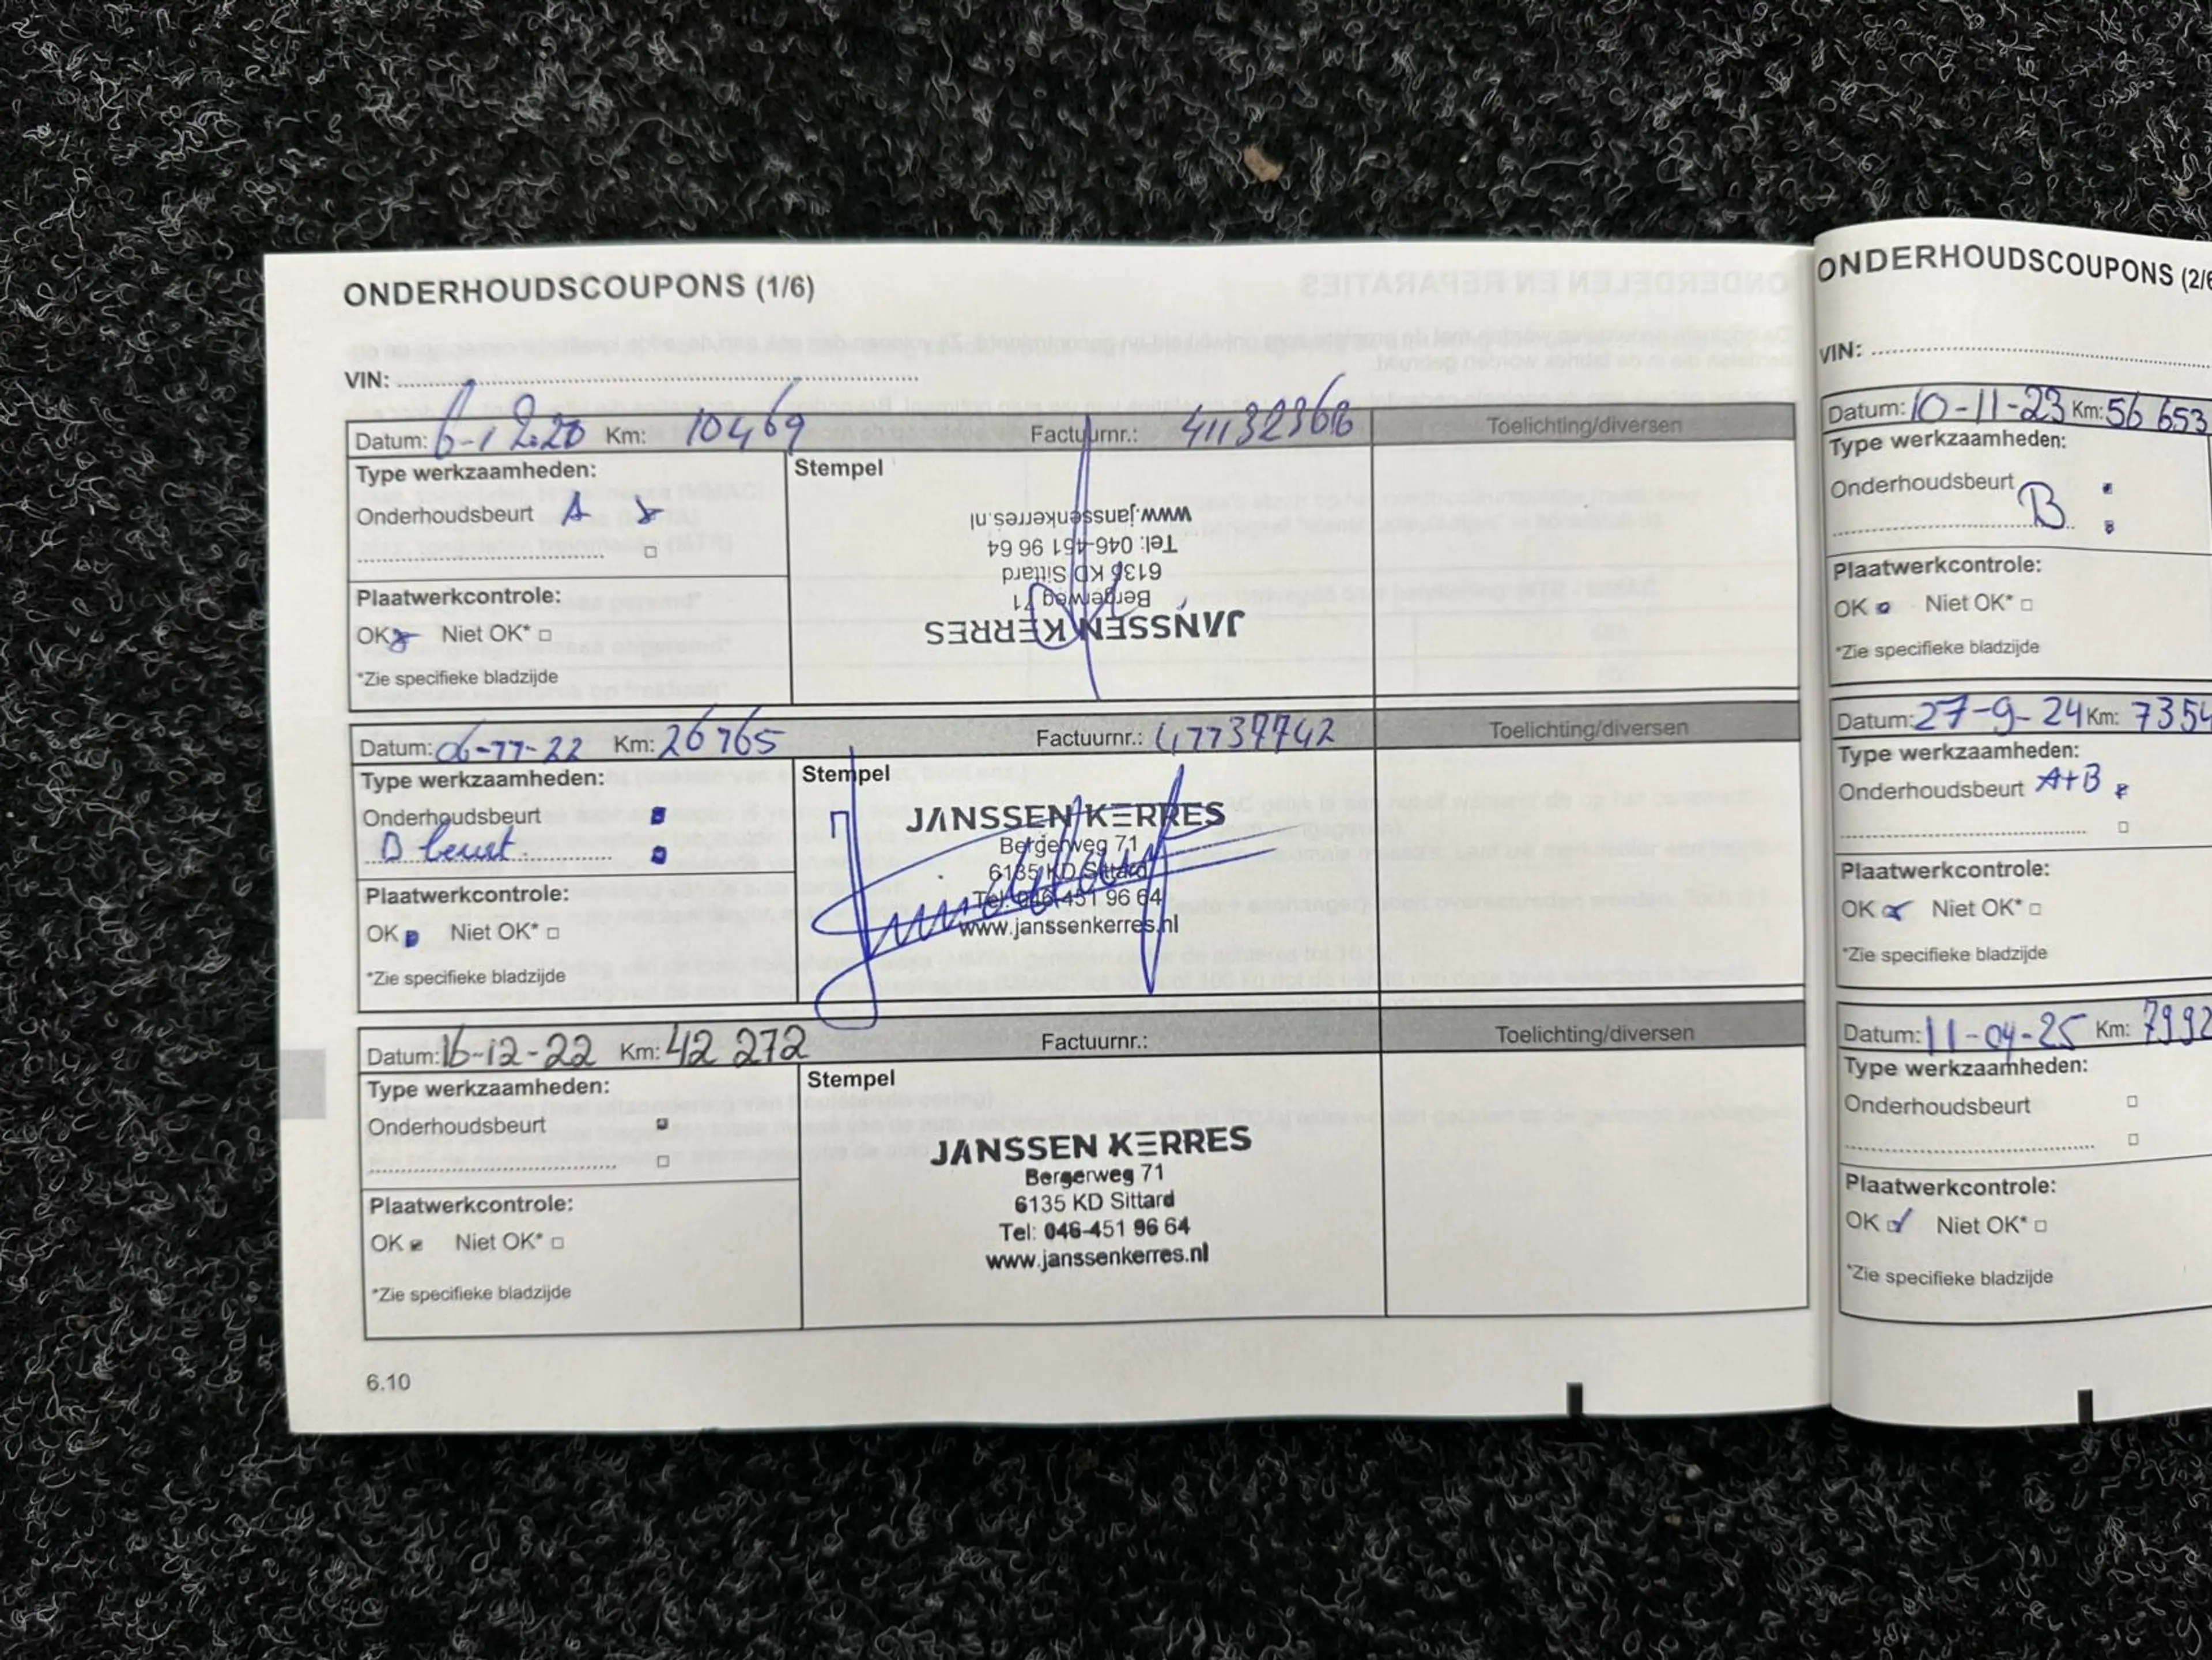 ONDERHOUDSCOUPONS (1/6)
VIN:
Datum: 6-1 2020 Km: 10469 Factuurnr.: 41132366 Toelichting/diversen
Type werkzaamheden:
Stempel
Onderhoudsbeurt A
Plaatwerkcontrole:
OK Niet OK*
*Zie specifieke bladzijde
JANSSEN KERRES
Bergerweg 71
6135 KD Sittard
Tel: 046-451 96 64
www.janssenkerres.nl
Datum: 06-77-22 Km: 26765 Factuurnr.: 47737742 Toelichting/diversen
Type werkzaamheden:
Stempel
Onderhoudsbeurt
B beurt
Plaatwerkcontrole:
OK Niet OK*
*Zie specifieke bladzijde
JANSSEN KERRES
Bergerweg 71
6135 KD Sittard
Tel: 046-451 96 64
www.janssenkerres.nl
Datum: 16-12-22 Km: 42 272 Factuurnr.: Toelichting/diversen
Type werkzaamheden:
Stempel
Onderhoudsbeurt
Plaatwerkcontrole:
OK Niet OK*
*Zie specifieke bladzijde
JANSSEN KERRES
Bergerweg 71
6135 KD Sittard
Tel: 046-451 96 64
www.janssenkerres.nl
6.10
ONDERHOUDSCOUPONS (2/6
VIN:
Datum: 10-11-23 Km: 56 653
Type werkzaamheden:
Onderhoudsbeurt
B
Plaatwerkcontrole:
OK Niet OK*
*Zie specifieke bladzijde
Datum: 27-9-24 Km: 7354
Type werkzaamheden:
Onderhoudsbeurt A+B
Plaatwerkcontrole:
OK Niet OK*
*Zie specifieke bladzijde
Datum: 11-04-25 Km: 7992
Type werkzaamheden:
Onderhoudsbeurt
Plaatwerkcontrole:
OK Niet OK*
*Zie specifieke bladzijde